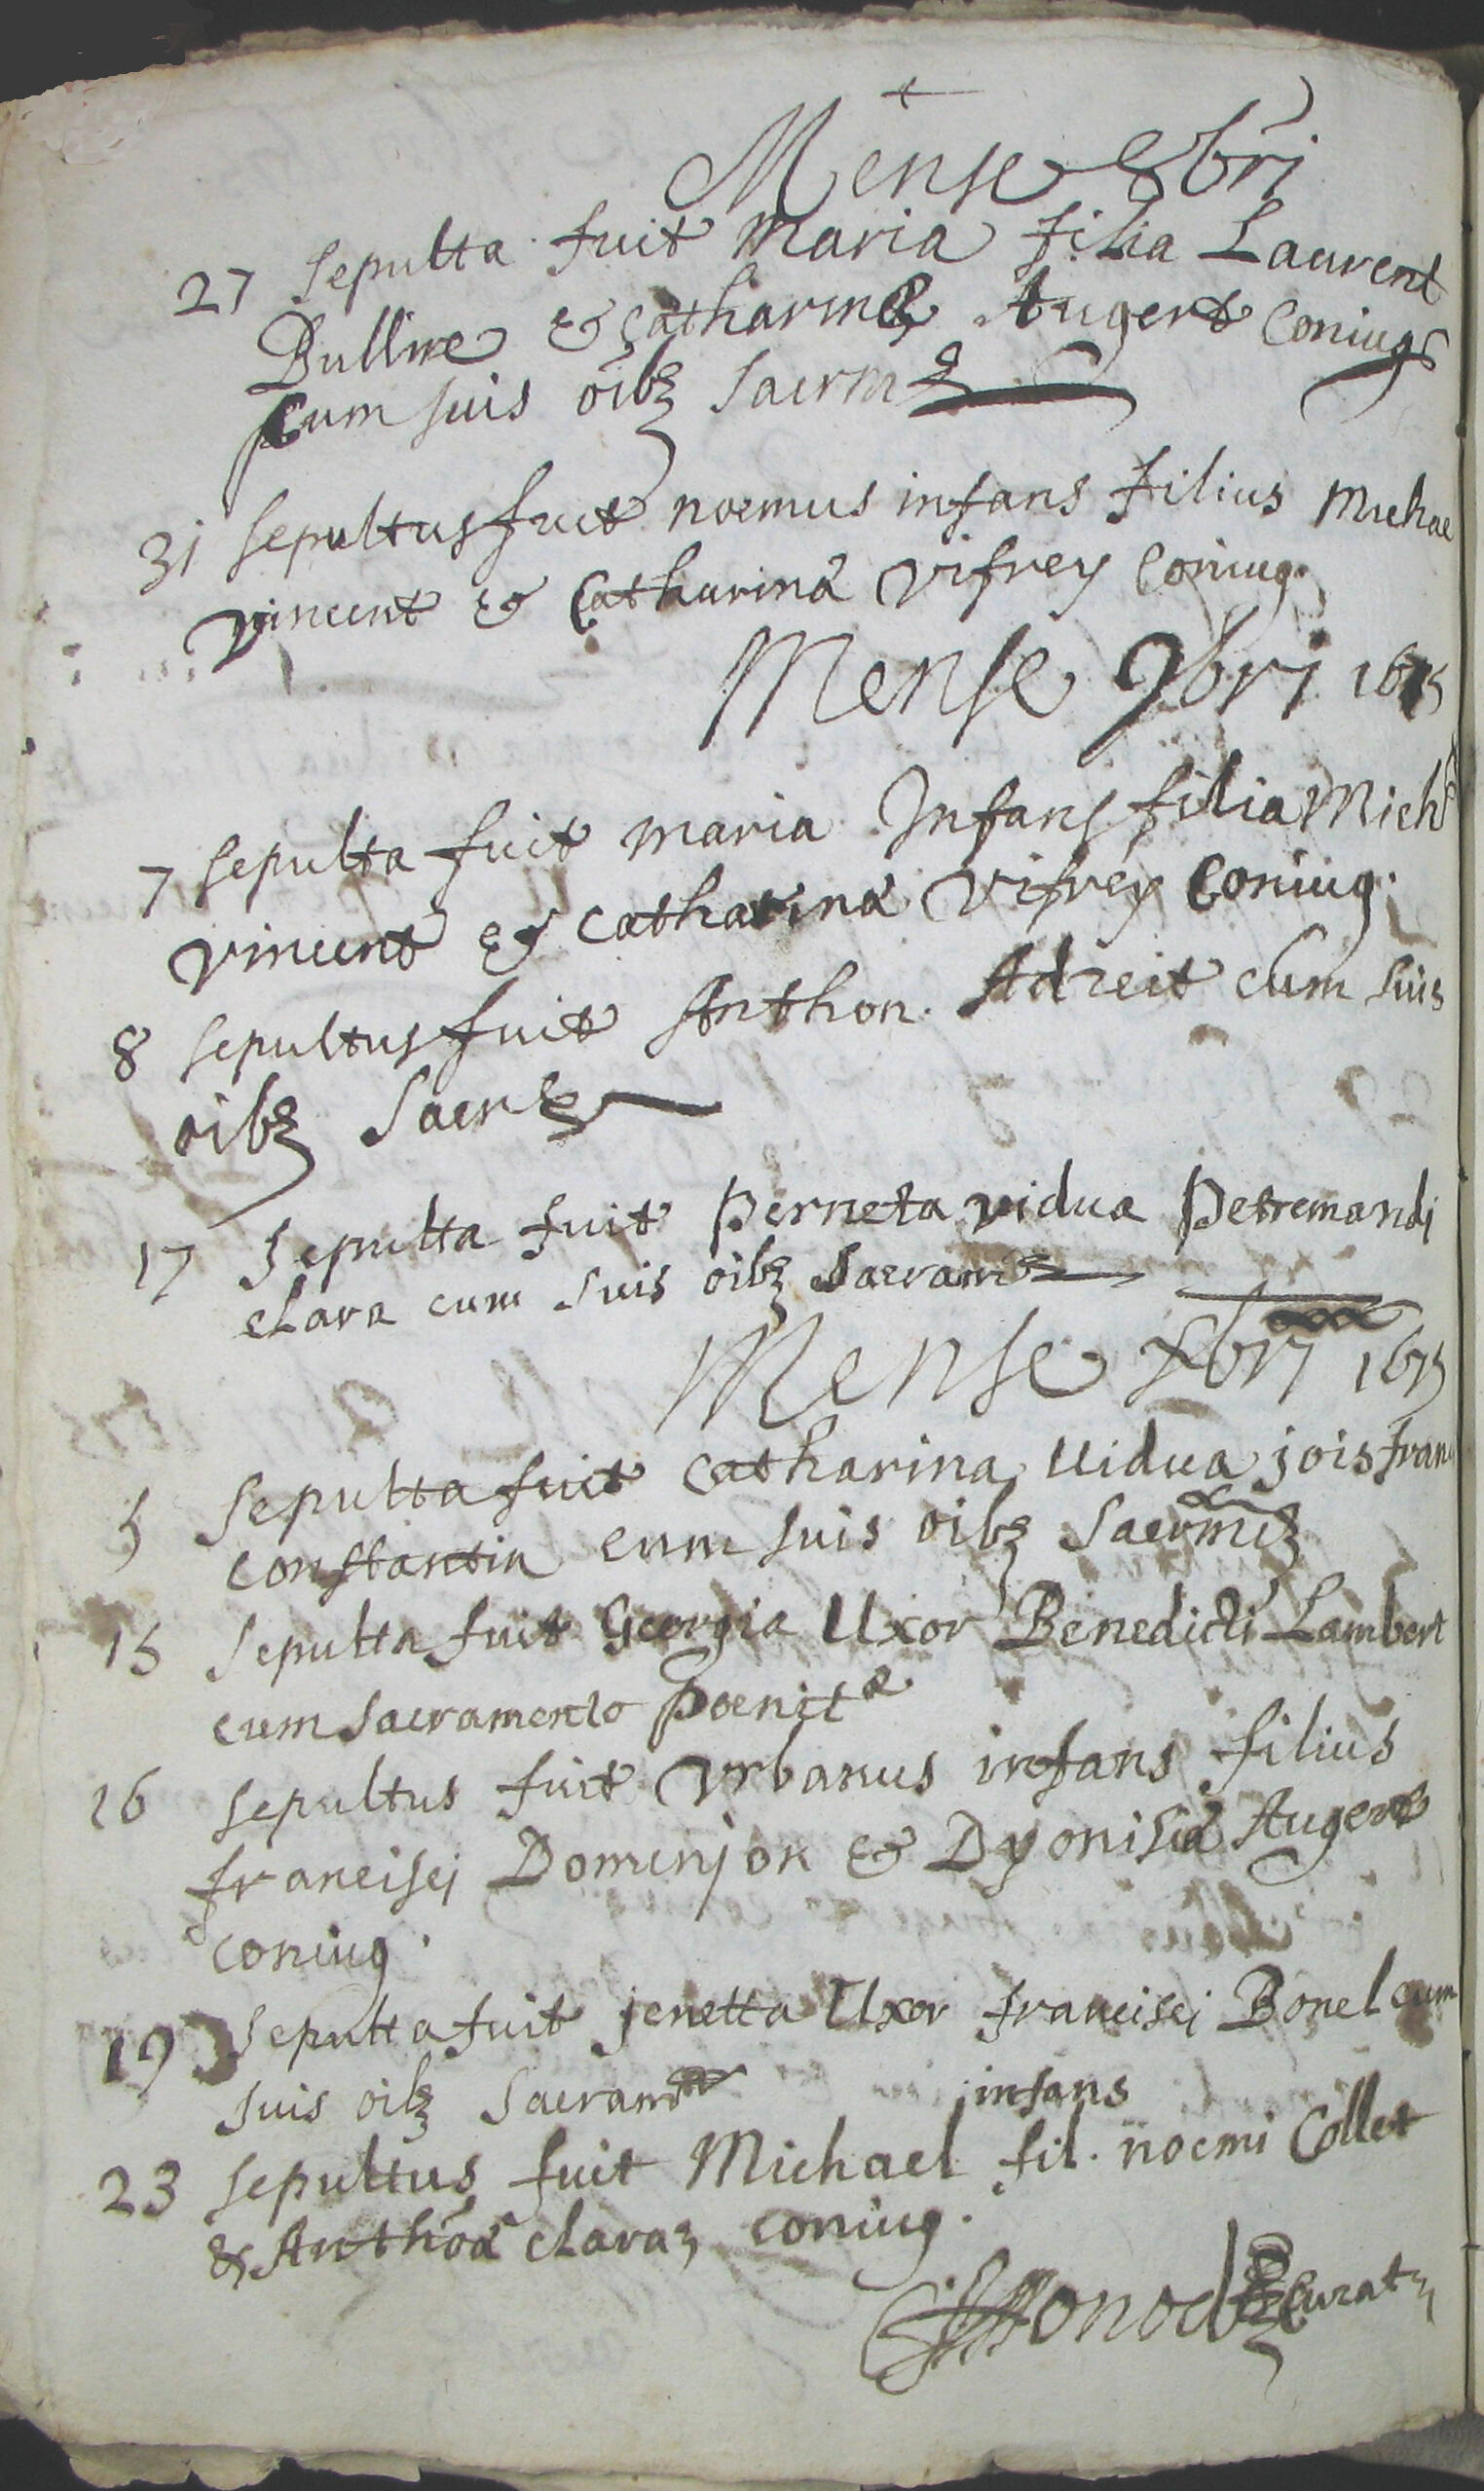 Mense 8bri
27 Sepulta fuit Maria filia Laurent
Bulline & Catharinæ Augert Coniug
Cum suis oibz Sacrm
31 Sepultus fuit noemus infans filius Michae
Vincent & Catharinæ Vifrey Coniug.
Mense 9bri 1675
7 Sepulta fuit maria Infans filia Mich
Vincent & Catharinæ Vifrey Coniug.
8 Sepultus fuit Anthon. Adreit cum suis
oibz Sacr
17 Sepulta fuit Perneta vidua Petremandi
Claraz cum suis oibz Sacram
Mense xbri 1675
5 Sepulta fuit Catharina Vidua jois fran
Constantin cum suis oibz Sacrmtz
15 Sepulta fuit Georgia Uxor Benedicti Lambert
cum Sacramento Poenitæ
16 Sepultus fuit Vrbanus infans filius
francisci Domenjon & Dyonisiæ Augert
Coniug.
19 Sepulta fuit jenetta Uxor francisci Bonel cum
suis oibz Sacram
infans
23 Sepultus fuit Michael fil. noemi Collet
& Anthoæ Claraz coniug.
Monod Curat